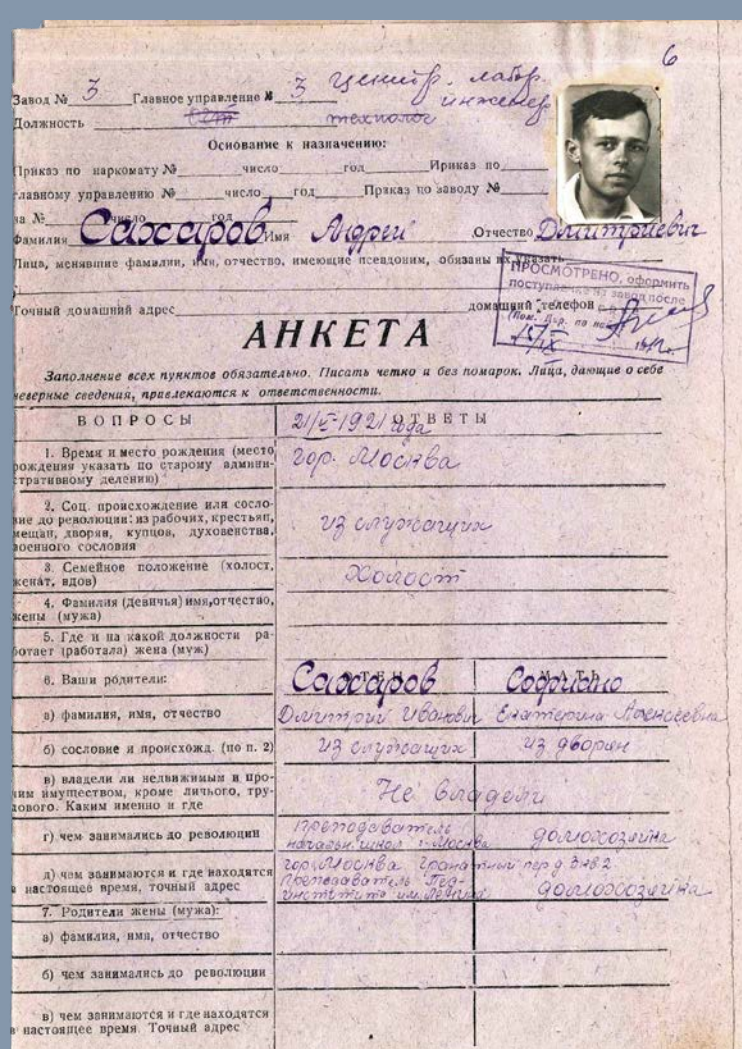 6
Завод № 3 Главное управление № 3 центр. лабор.
инженер
Должность технолог
Основание к назначению:
Приказ по наркомату № число год Приказ по
главному управлению № число год Приказ по заводу №
на № число год
Фамилия Сахаров Имя Андрей Отчество Дмитриевич
Лица, менявшие фамилии, имя, отчество, имеющие псевдоним, обязаны их указать
ПРОСМОТРЕНО, оформить
поступление на завод после
Точный домашний адрес домашний телефон
(Пом. Дир. по
АНКЕТА
Заполнение всех пунктов обязательно. Писать четко и без помарок. Лица, дающие о себе
неверные сведения, привлекаются к ответственности.
ВОПРОСЫ ОТВЕТЫ
21/V-1921 года
1. Время и место рождения (место
рождения указать по старому админи-
стративному делению)
гор. Москва
2. Соц. происхождение или сосло-
вие до революции: из рабочих, крестьян,
мещан, дворян, купцов, духовенства,
военного сословия
из служащих
3. Семейное положение (холост,
женат, вдов)
Холост
4. Фамилия (девичья) имя, отчество,
жены (мужа)
5. Где и на какой должности ра-
ботает (работала) жена (муж)
6. Ваши родители:
ОТЕЦ МАТЬ
Сахаров Софиано
а) фамилия, имя, отчество
Дмитрий Иванович Екатерина Алексеевна
б) сословие и происхожд. (по п. 2)
из служащих из дворян
в) владели ли недвижимым и про-
чим имуществом, кроме личного, тру-
дового. Каким именно и где
Не владели
г) чем занимались до революции
преподаватель
начальн. школ г. Москва домохозяйка
д) чем занимаются и где находятся
в настоящее время, точный адрес
гор. Москва Гранатный пер д 3 кв 2
Преподаватель Пед-
института им. Ленина домохозяйка
7. Родители жены (мужа):
а) фамилия, имя, отчество
б) чем занимались до революции
в) чем занимаются и где находятся
в настоящее время. Точный адрес